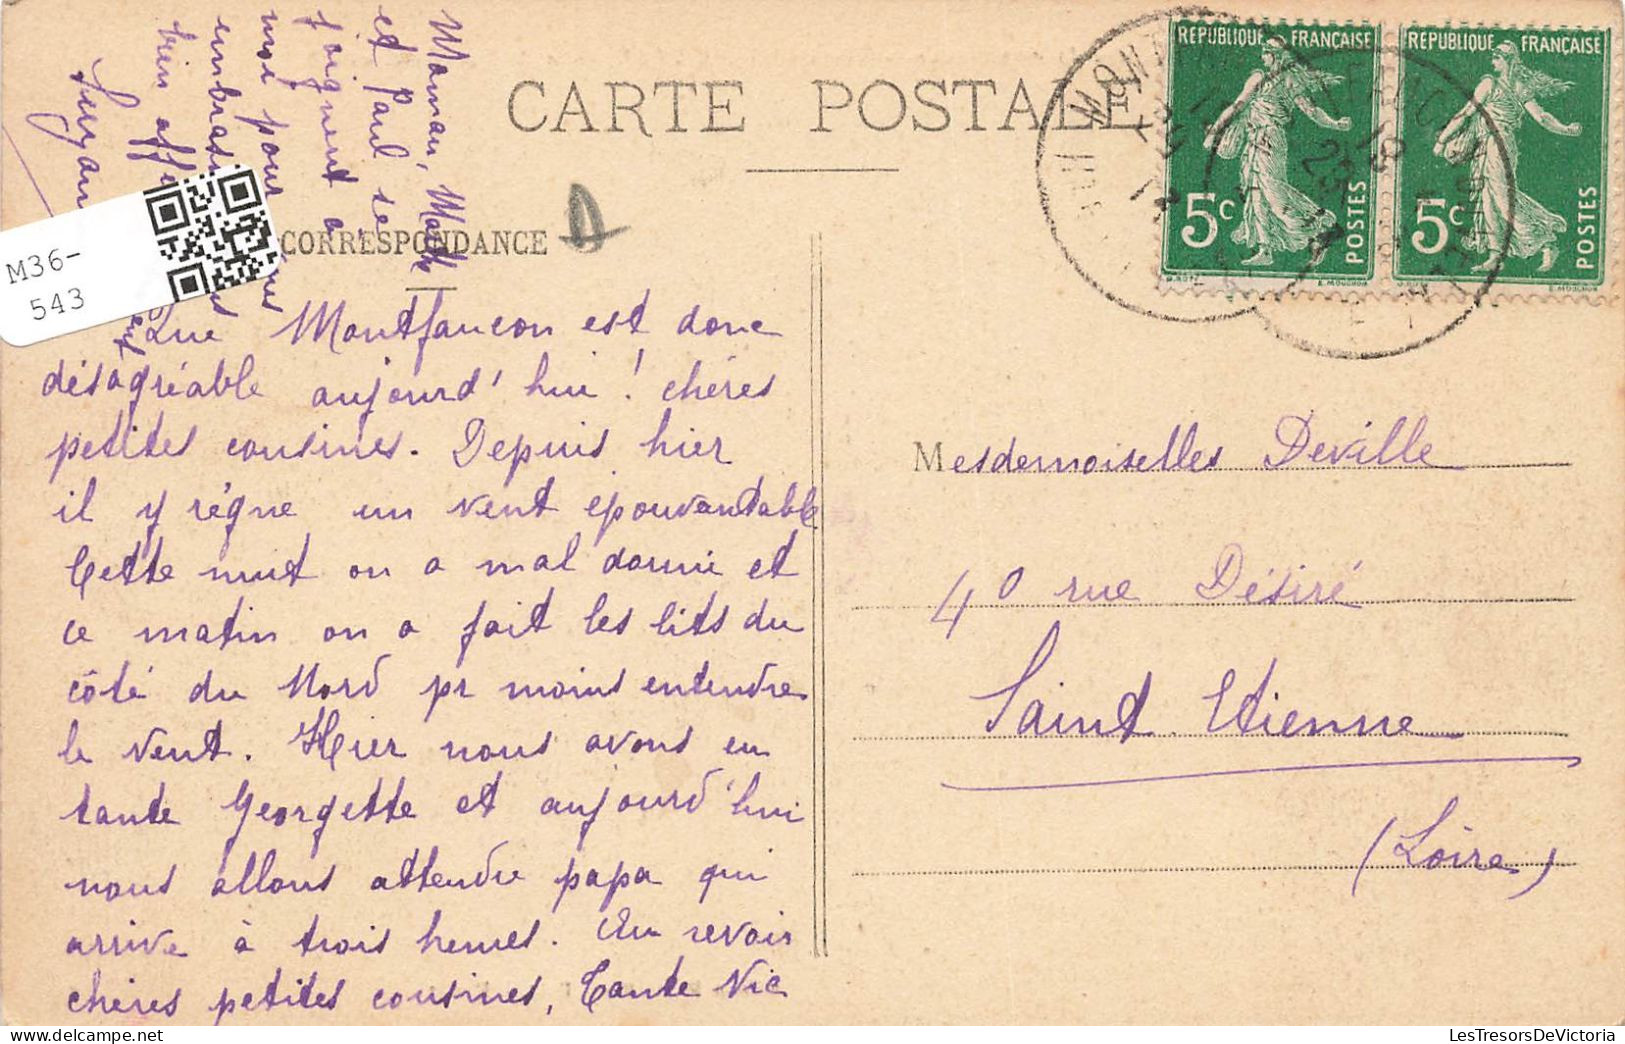 CARTE POSTALE
CORRESPONDANCE
Que Montfaucon est donc
désagréable aujourd'hui ! chères
petites cousines. Depuis hier
il y règne un vent épouvantable
Cette nuit on a mal dormi et
ce matin on a fait les lits du
côté du Nord pr moins entendre
le vent. Hier nous avons eu
tante Georgette et aujourd'hui
nous allons attendre papa qui
arrive à trois heures. Au revoir
chères petites cousines, Tante Vic
Maman, Marthe
et Paul se
joignent à
moi pour
bien
REPUBLIQUE FRANÇAISE
5c
POSTES
REPUBLIQUE FRANÇAISE
5c
POSTES
Mesdemoiselles Deville
40 rue Désiré
Saint Etienne
(Loire)
M36-
543
LesTresorsDeVictoria.com